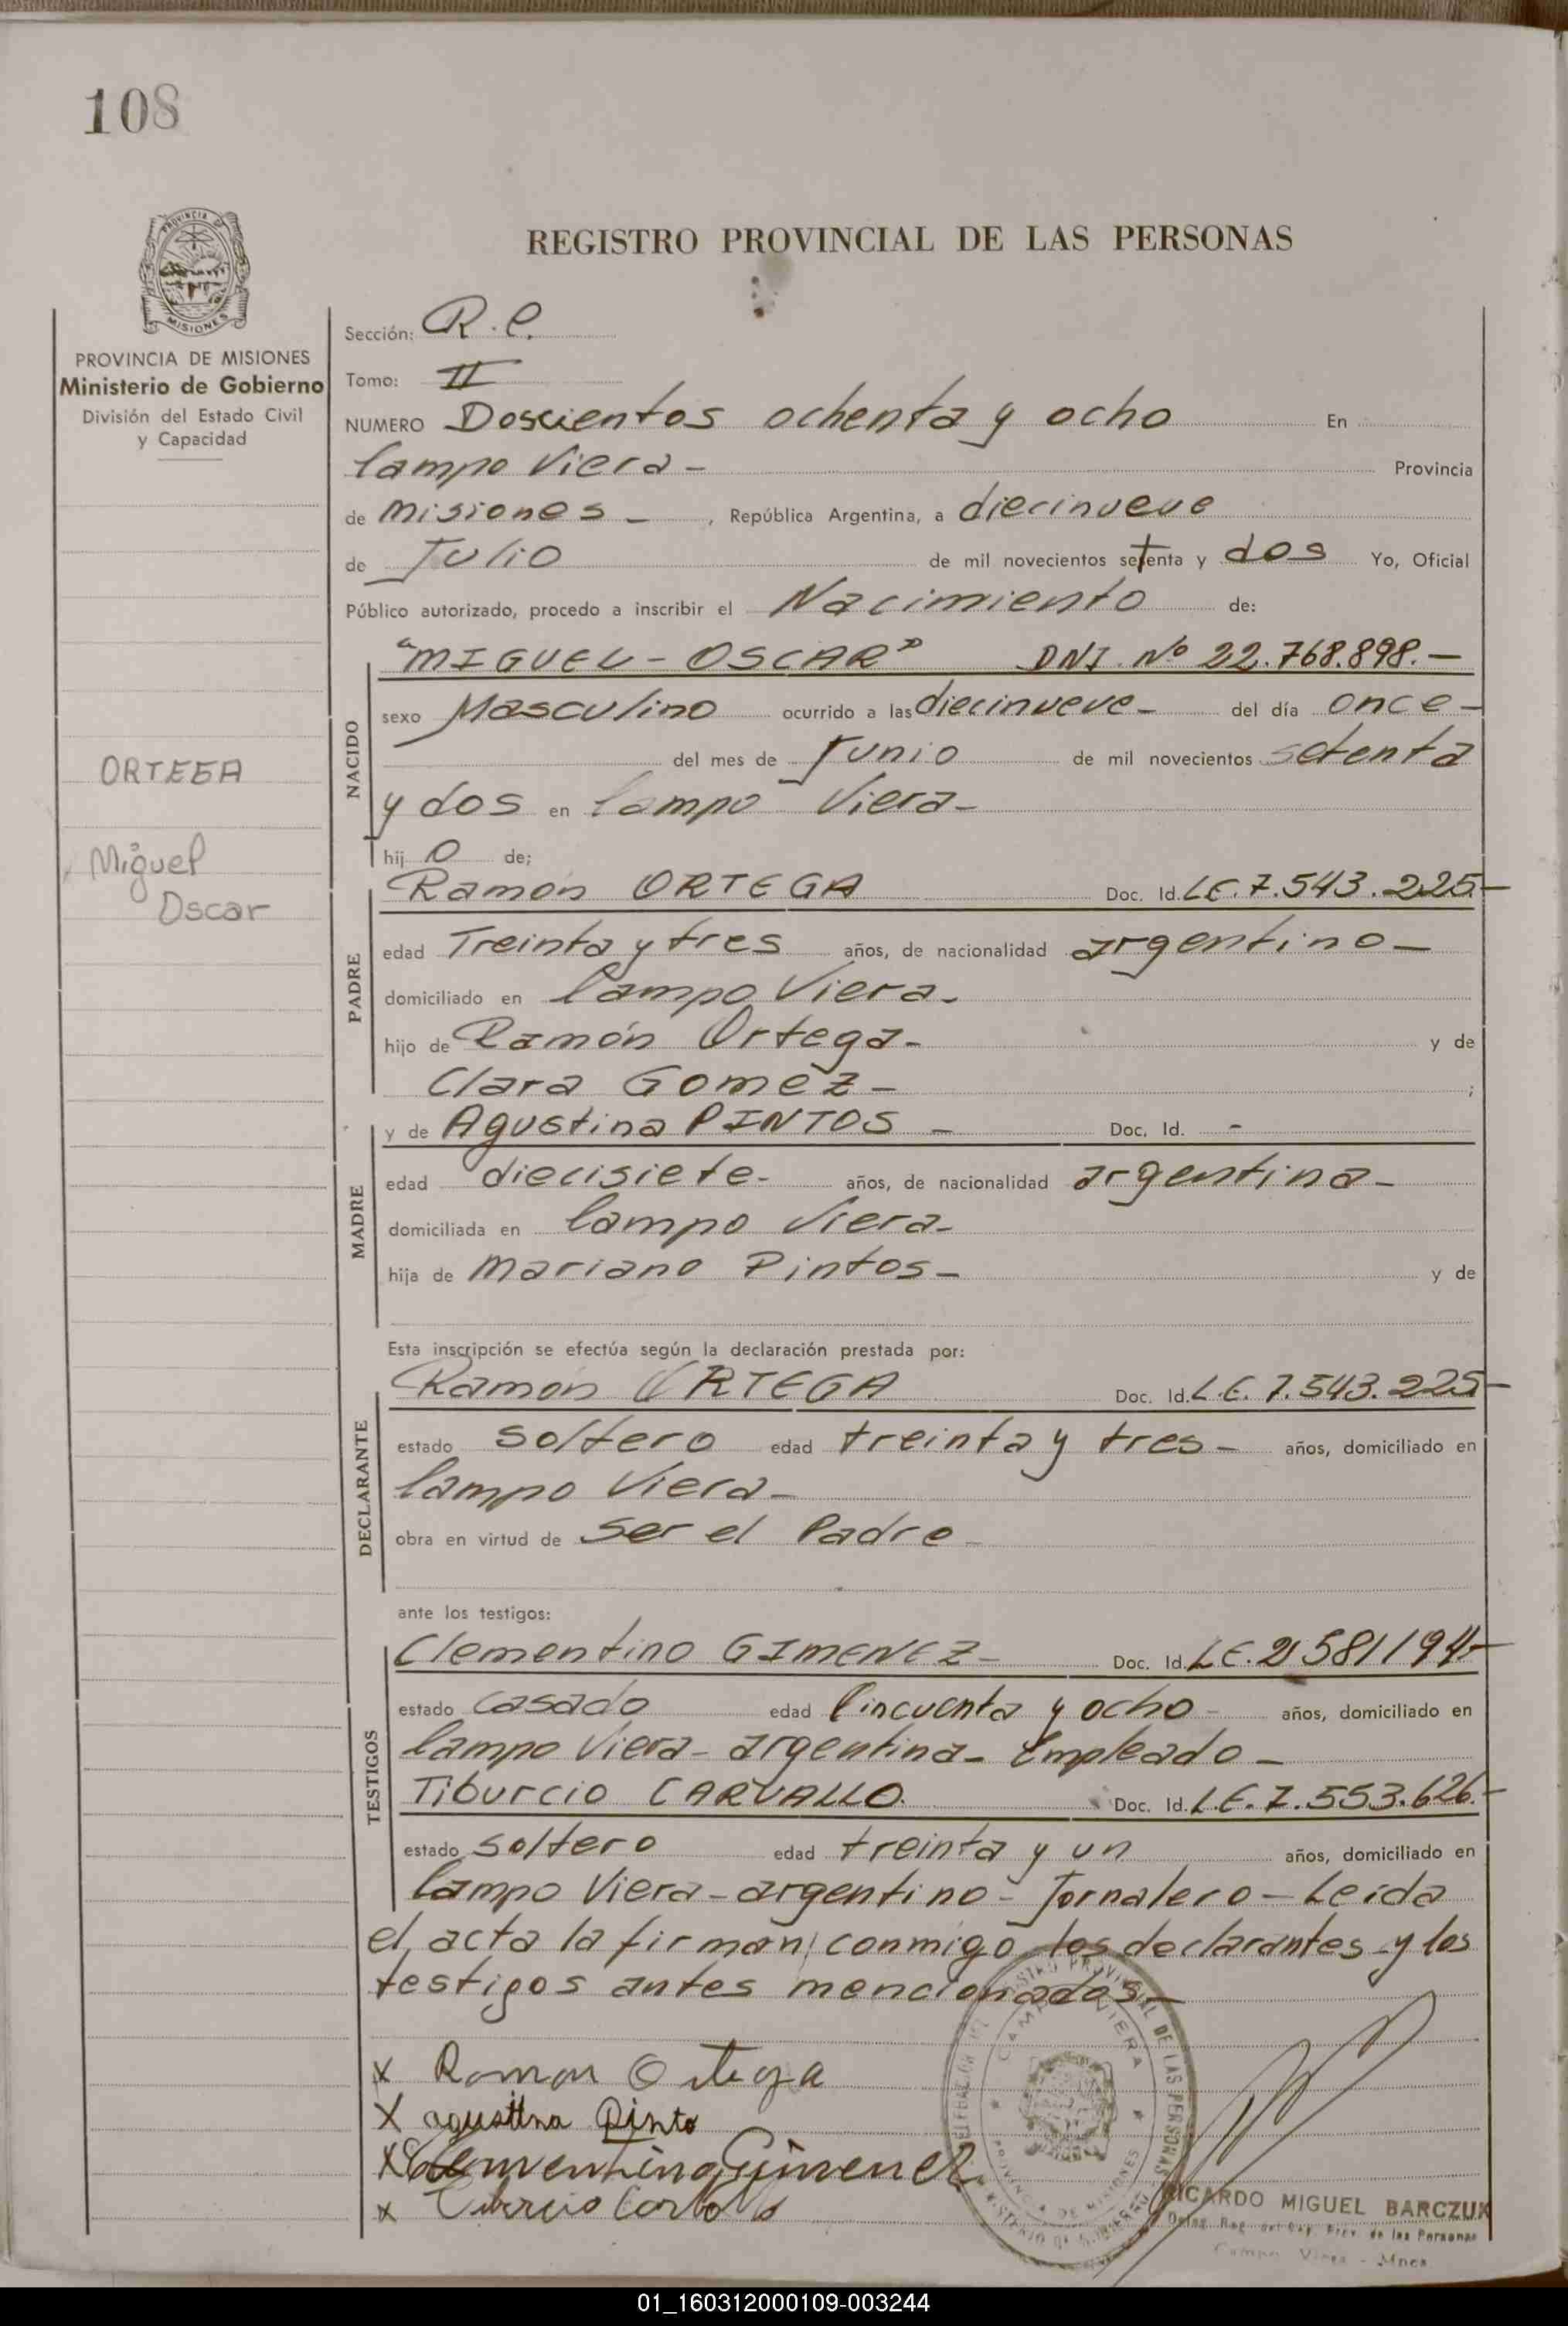 108
PROVINCIA DE
MISIONES
PROVINCIA DE MISIONES
Ministerio de Gobierno
División del Estado Civil
y Capacidad
ORTEGA
Miguel
Oscar
REGISTRO PROVINCIAL DE LAS PERSONAS
Sección: R.C.
Tomo: II
NUMERO Doscientos ochenta y ocho En
Campo Viera - Provincia
de Misiones - , República Argentina, a diecinueve
de Julio de mil novecientos setenta y dos Yo, Oficial
Público autorizado, procedo a inscribir el Nacimiento de:
"MIGUEL - OSCAR" DNI. Nº 22.768.898.-
NACIDO
sexo Masculino ocurrido a las diecinueve - del día once -
del mes de Junio de mil novecientos setenta
y dos en Campo Viera -
hij o de;
PADRE
Ramón ORTEGA Doc. Id. L.E. 7.543.225-
edad Treinta y tres años, de nacionalidad argentino -
domiciliado en Campo Viera -
hijo de Ramón Ortega - y de
Clara Gomez - ;
MADRE
y de Agustina PINTOS - Doc. Id. -
edad diecisiete - años, de nacionalidad argentina -
domiciliada en Campo Viera -
hija de Mariano Pintos - y de
Esta inscripción se efectúa según la declaración prestada por:
DECLARANTE
Ramón ORTEGA Doc. Id. L.E. 7.543.225-
estado soltero edad treinta y tres - años, domiciliado en
Campo Viera -
obra en virtud de ser el Padre -
ante los testigos:
TESTIGOS
Clementino GIMENEZ - Doc. Id. L.E.
estado casado edad Cincuenta y ocho - años, domiciliado en
Campo Viera - argentina - Empleado -
Tiburcio CARVALLO. Doc. Id. L.E. 7.553.626.-
estado soltero edad treinta y un años, domiciliado en
Campo Viera - argentino - Jornalero - Leida
el acta la firman conmigo los declarantes y los
testigos antes mencionados -
x Ramon Ortega
x agustina Pinto
x Clementino Gimenez
x
CAMPO VIERA
PROVINCIA DE MISIONES
RICARDO MIGUEL BARCZUK
Campo Viera - Mnes
01_160312000109-003244